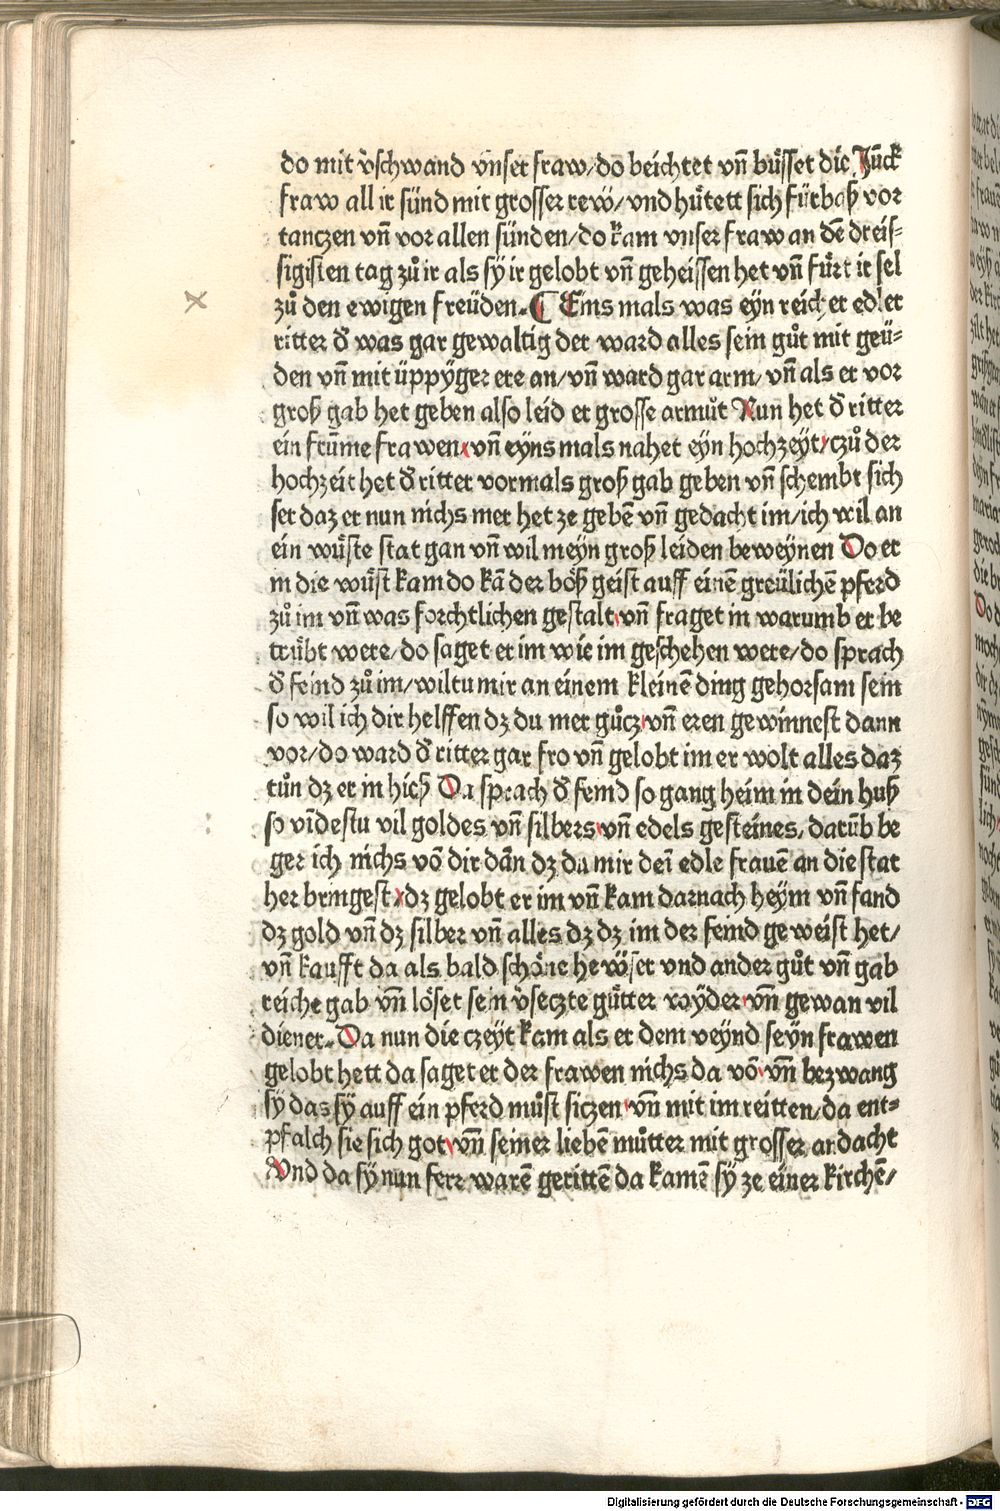 do mit v̾schwand vnser fraw/do beichtet vn̄ bůsset die Jūck
fraw all ir sünd mit grosser rew̋/ vnd hůtett sich fürbaß vor
tanczen vn̄ vor allen sünden/do kam vnser fraw an dē dreis⸗
sigisten tag zů ir als sy ir gelobt vn̄ geheissen het vn̄ fürt ir sel
zů den ewigen freüden. ¶ Eins mals was eyn reicher edler
ritter ď was gar gewaltig der ward alles sein gůt mit geü⸗
den vn̄ mit üppÿger ere an/ vn̄ ward gar arm/ vn̄ als er vor
groß gab het geben also leid er grosse armůt Nun het ď ritter
ein frūme frawen vn̄ eyns mals nahet eyn hochzeyt/ czů der
hochzeit het ď ritter vormals groß gab geben vn̄ schembt sich
ser daz er nun nichs mer het ze gebē vn̄ gedacht im/ich wil an
ein wůste stat gan vn̄ wil meyn groß leiden beweynen Do er
in die wůst kam do kā der bőß geist auff einē greülichē pferd
zů im vn̄ was forchtlichen gestalt vn̄ fraget in warumb er be
trůbt were/ do saget er im wie im geschehen were/ do sprach
ď feind zů im/ wiltu mir an einem kleinē ding gehorsam sein
so wil ich dir helffen dz du mer gůcz vn̄ eren gewinnest dann
vor/ do ward ď ritter gar fro vn̄ gelobt im er wolt alles daz
tůn dz er in hieß Da sprach ď feind so gang heim in dein huß
so vīdestu vil goldes vn̄ silbers vn̄ edels gesteines, darūb be
ger ich nichs vō dir dān dz du mir dei edle frauē an die stat
her bringest dz gelobt er im vn̄ kam darnach heym vn̄ fand
dz gold vn̄ dz silber vn̄ alles dz dz im der feind geweist het/
vn̄ kaufft da als bald schőne hew̋ser vnd ander gůt vn̄ gab
reiche gab vn̄ lőset sein v̾seczte gůtter wÿder vn̄ gewan vil
diener. Da nun die czeyt kam als er dem veynd seyn frawen
gelobt hett da saget er der frawen nichs da vō vn̄ bezwang
sÿ das sÿ auff ein pferd můst siczen vn̄ mit im reitten/ da ent⸗
pfalch sie sich got vn̄ seiner liebē můtter mit grosser andacht
Vnd da sÿ nun ferr warē gerittē da kamē sÿ ze einer kirchē/
Digitalisierung gefördert durch die Deutsche Forschungsgemeinschaft - DFG